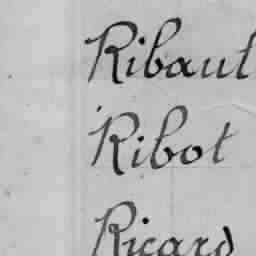 Ribaut
Ribot
Ricard